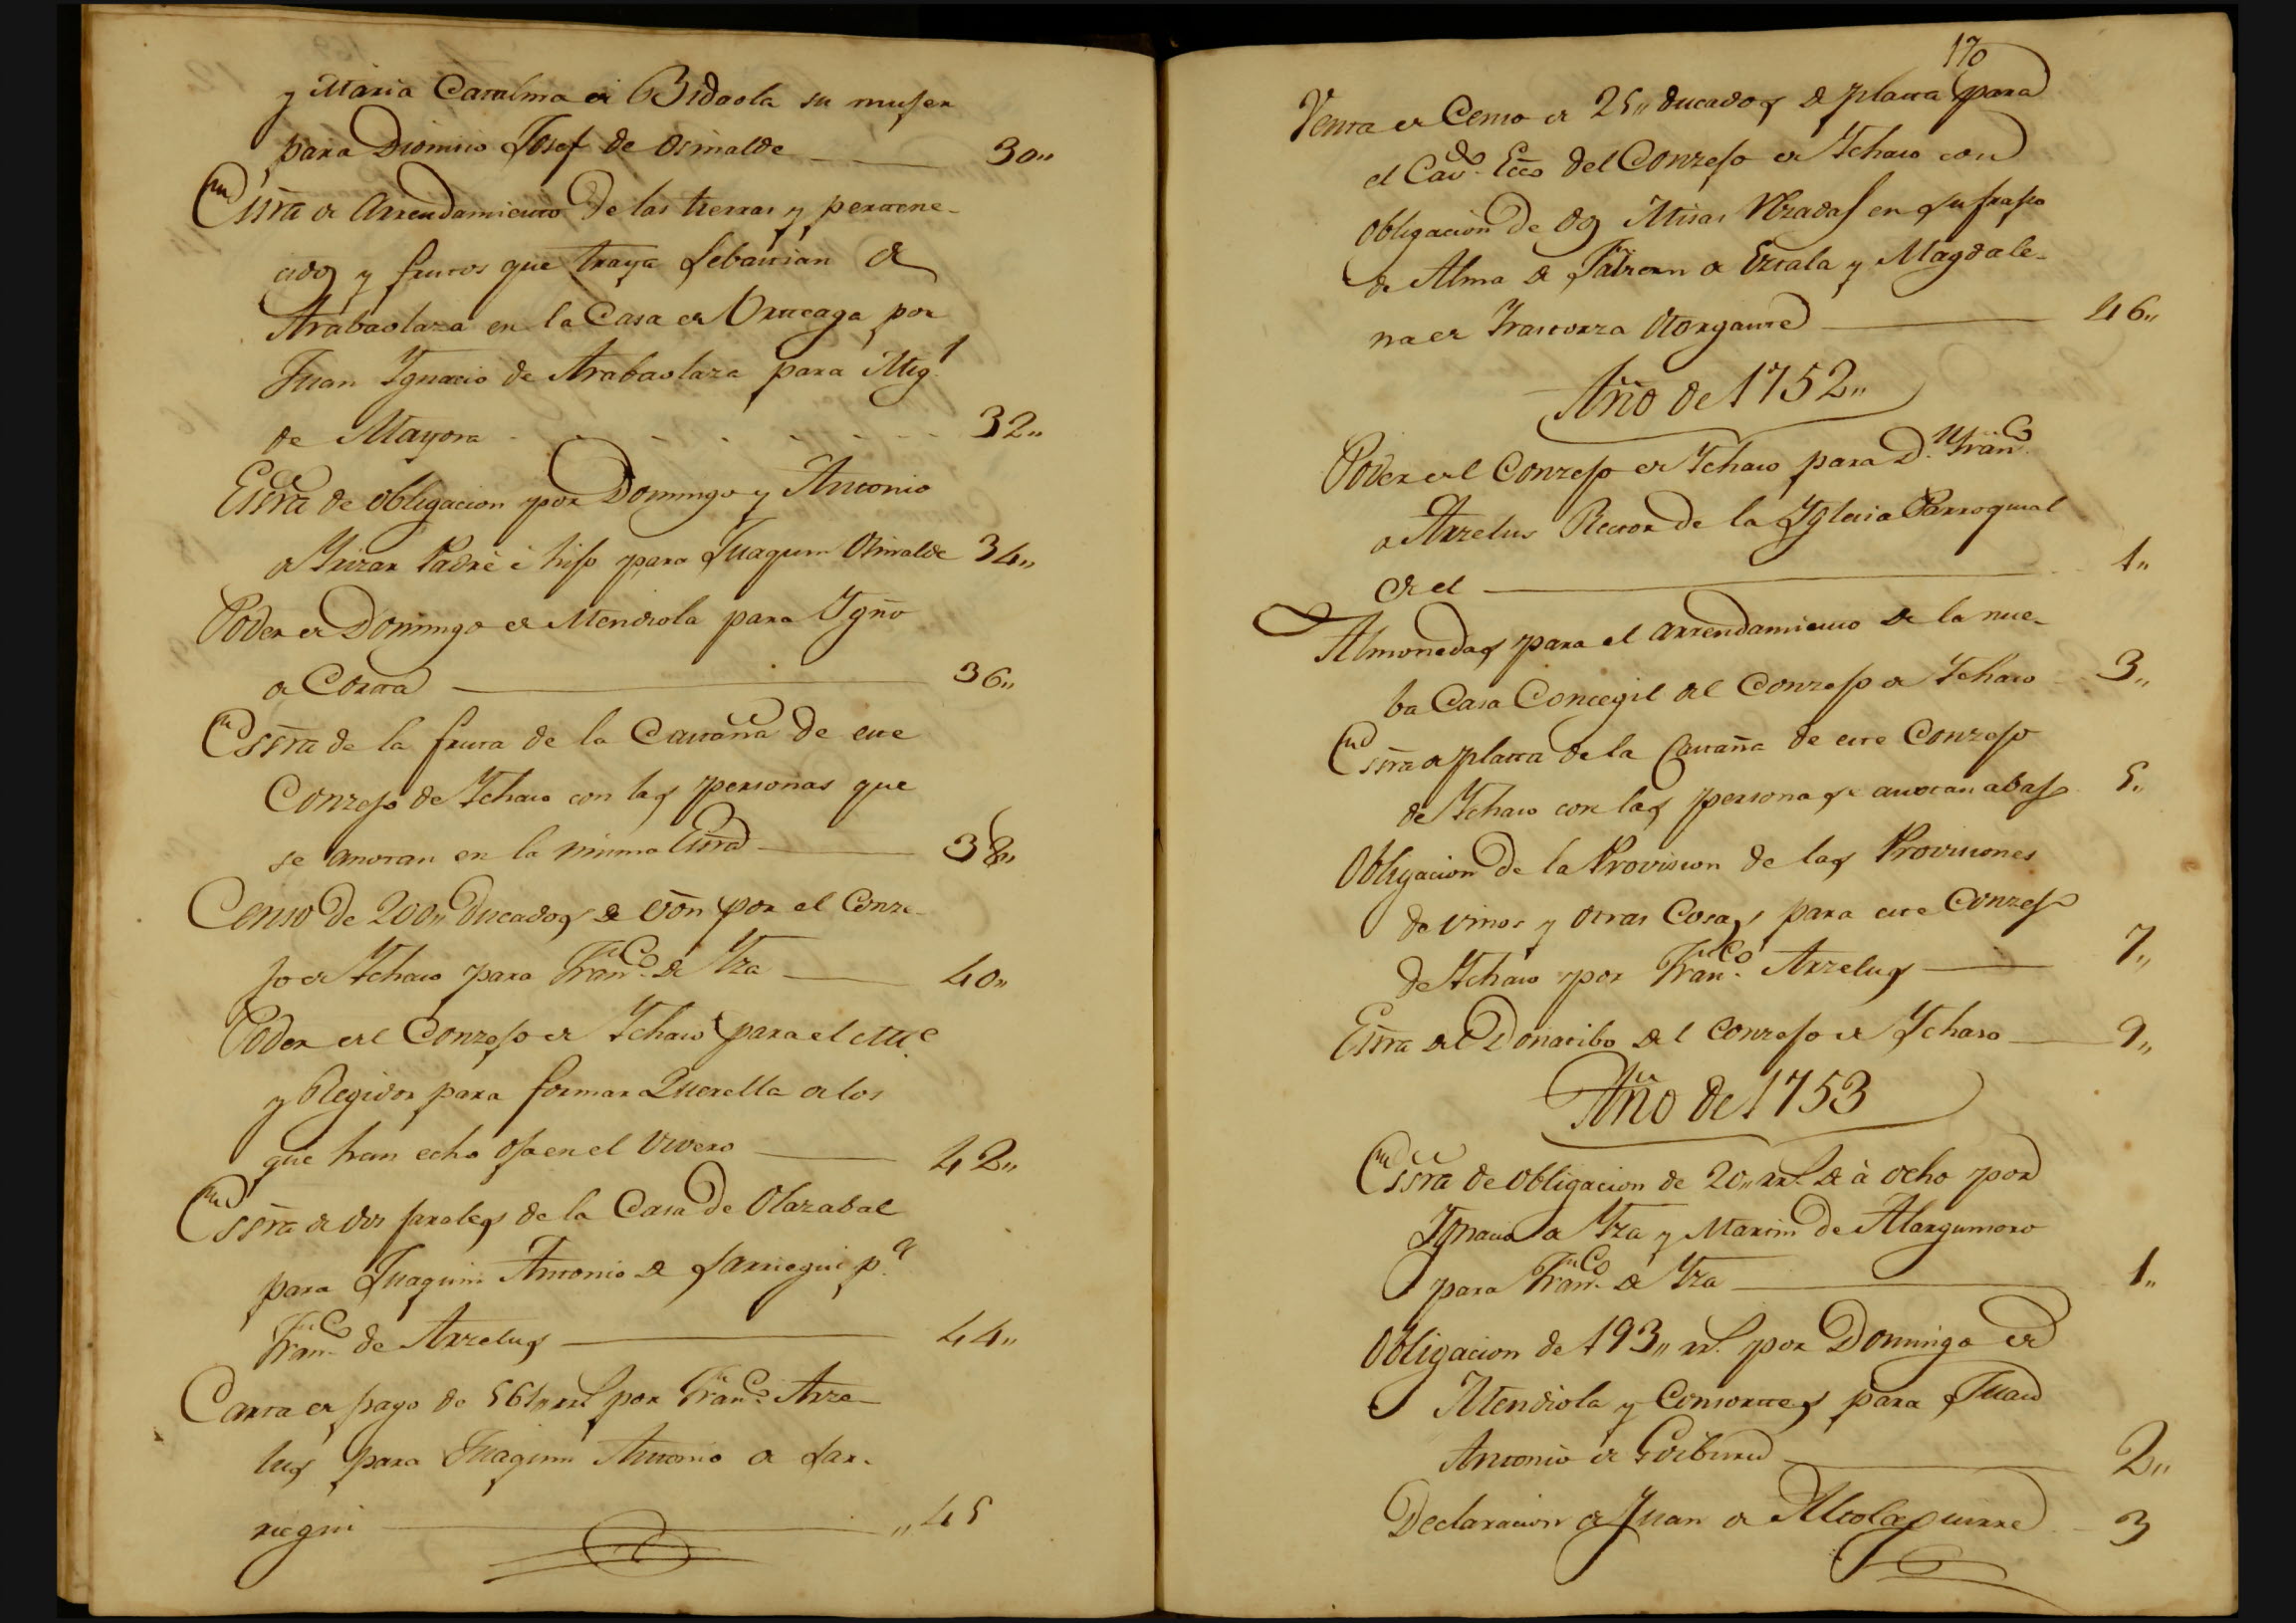 y Maria Catalina de Bidaola su muger
para Dionisio Josef de Osinalde 30,,
Essra de Arrendamiento de las tierras y pertene-
cidos y frutos que traya Sebastian de
Arabaolaza en la Casa de Urteaga por
Juan Ygnacio de Arabaolaza para Migl
de Mayora 32,,
Essra de obligacion por Domingo y Antonio
de Yrizar Padre é hijo para Juaquin Osinalde 34,,
Poder de Domingo de Mendiola para Ygño
de Corta 36,,
Essra de la fruta de la Castaña de este
Conzejo de Ychaso con las personas que
se anotan en la misma Essra 38,,
Censo de 200,, Ducados de von por el Conze-
jo de Ychaso para Franco de Yza 40,,
Poder del Conzejo de Ychaso para el Alce
y Regidor para formar Querella a los
que han echo ojo en el Vivero 42,,
Essra de dos jaroles de la Casa de Olazabal
para Juaquin Antonio de Larriegui pa
Franco de Arzelus 44,,
Carta de pago de 561,, rrs por Franco Arze-
lus para Juaquin Antonio de Lar-
riegui ,,45
170
Venta de Censo de 25,, ducados de plata para
el Cavdo Ecco del Conzejo de Ychaso con
obligacion de dos Misas Rezadas en sufrajio
de Alma de Fabian de Ezcala y Magdale-
na de Yrastorza Otorgante 46,,
Año de 1752,,
Poder del Conzejo de Ychaso para Dn Franco
de Arzelus Rector de la Yglesia Parroquial
de el 1,,
Almonedas para el arrendamiento de la nue-
ba Casa Concegil del Conzejo de Ychaso 3,,
Essra de plata de la Castaña de este Conzejo
de Ychaso con las personas qe anotan abajo 5,,
Obligacion de la Provision de las Provisiones
de vinos y otras Cosas para este Conzejo
de Ychaso por Franco Arzelus 7,,
Essra del Donatibo del Conzejo de Ychaso 9,,
Año de 1753
Essra de obligacion de 20,, rrs de à ocho por
Ygnacio de Yza y Martin de Alargunsoro
para Franco de Yza 1,,
Obligacion de 193,, rrs por Domingo de
Mendiola y Consortes para Juan
Antonio de Goiburu 2,,
Declaracion de Juan de 3